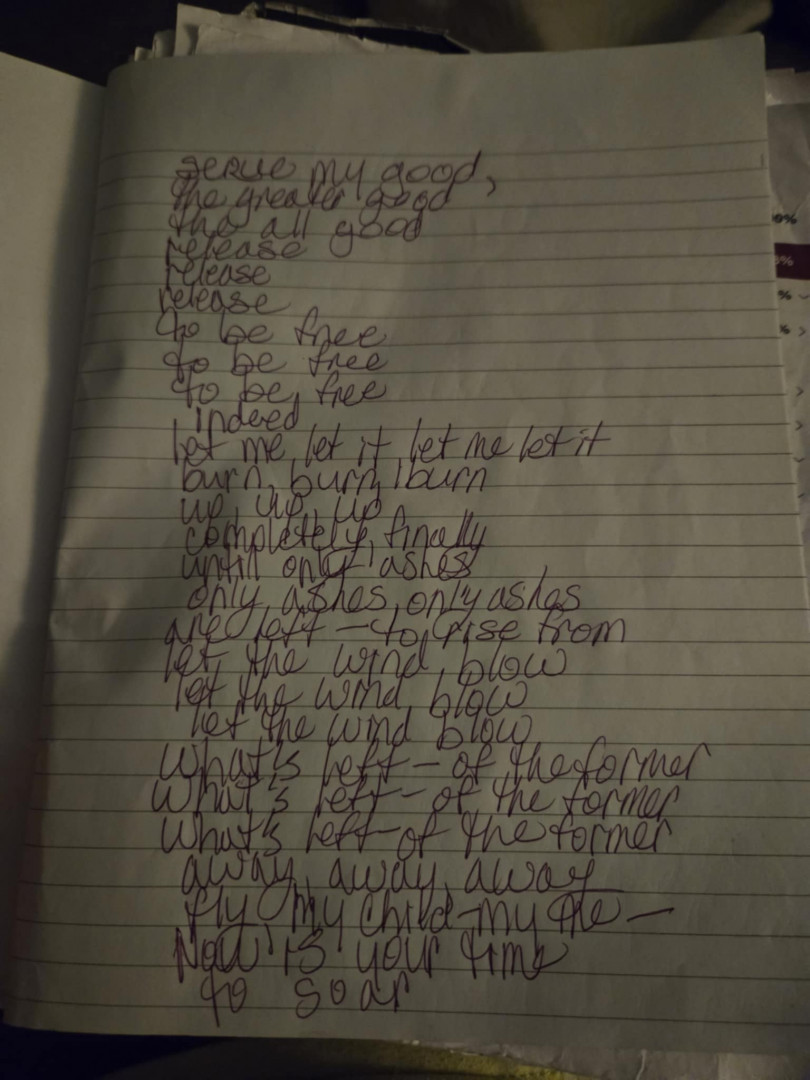 serve my good,
the greater good
the all good
release
release
release
to be free
to be free
to be, free
indeed
let me, let it, let me let it
burn, burn, burn
up, up, up
completely, finally
until only ashes
only ashes, only ashes
are left - to rise from
let the wind blow
let the wind blow
let the wind blow
what's left - of the former
what's left - of the former
what's left - of the former
away, away, away
fly, my child - my me -
Now is your time
to soar
0%
%
%
%